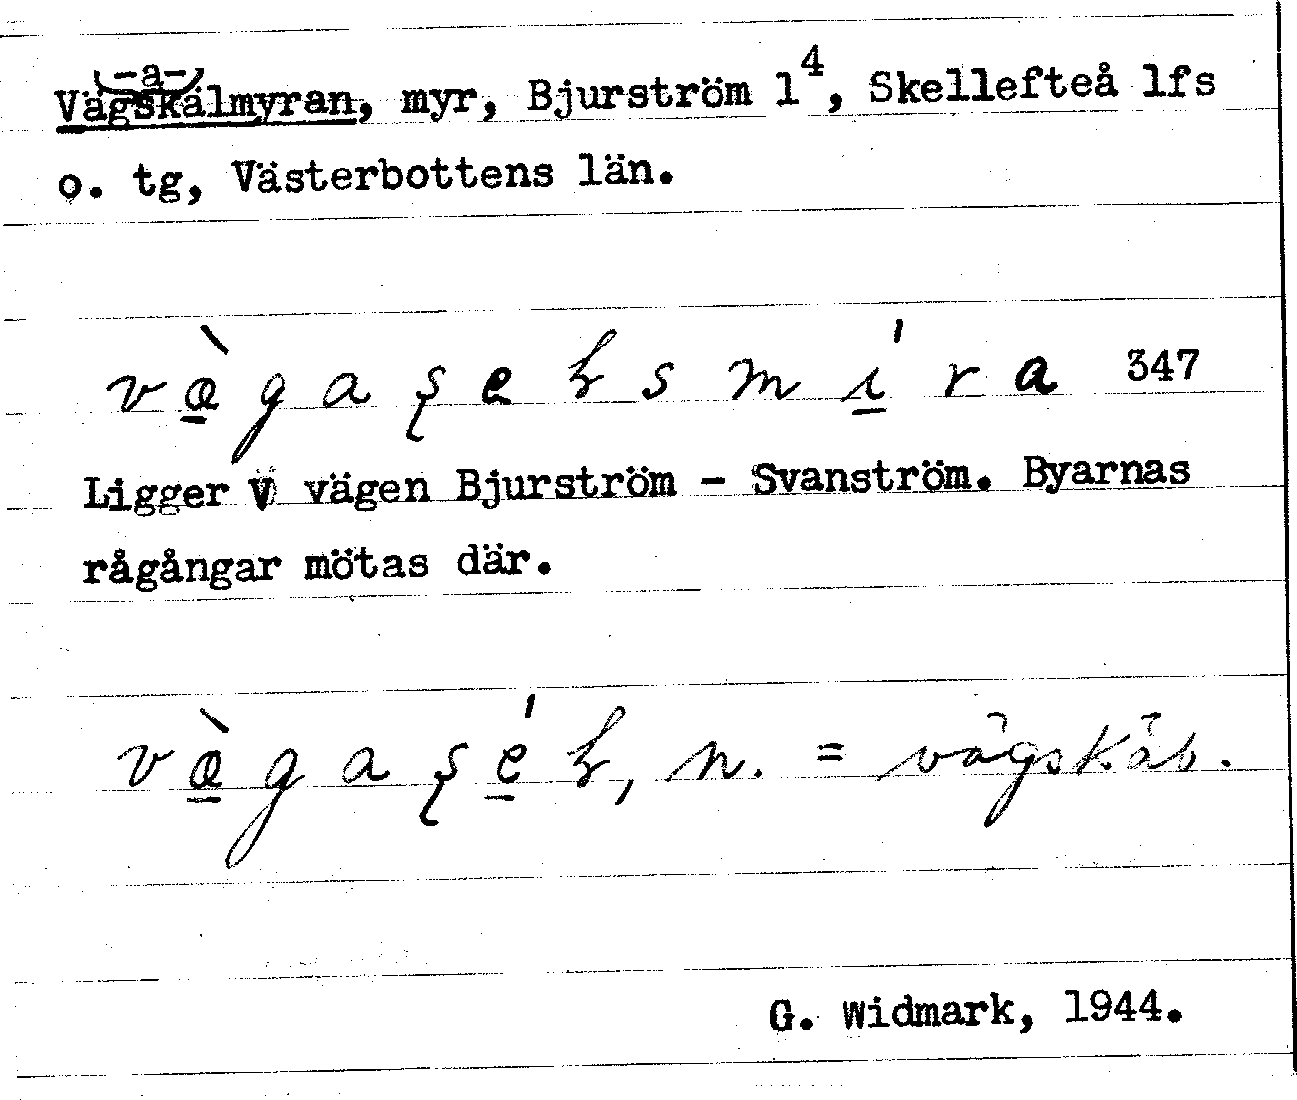 -a-
Vägskälmyran, myr, Bjurström 1⁴, Skellefteå lfs
o. tg, Västerbottens län.
347
Ligger V vägen Bjurström - Svanström. Byarnas
rågångar mötas där.
n. =
G. Widmark, 1944.